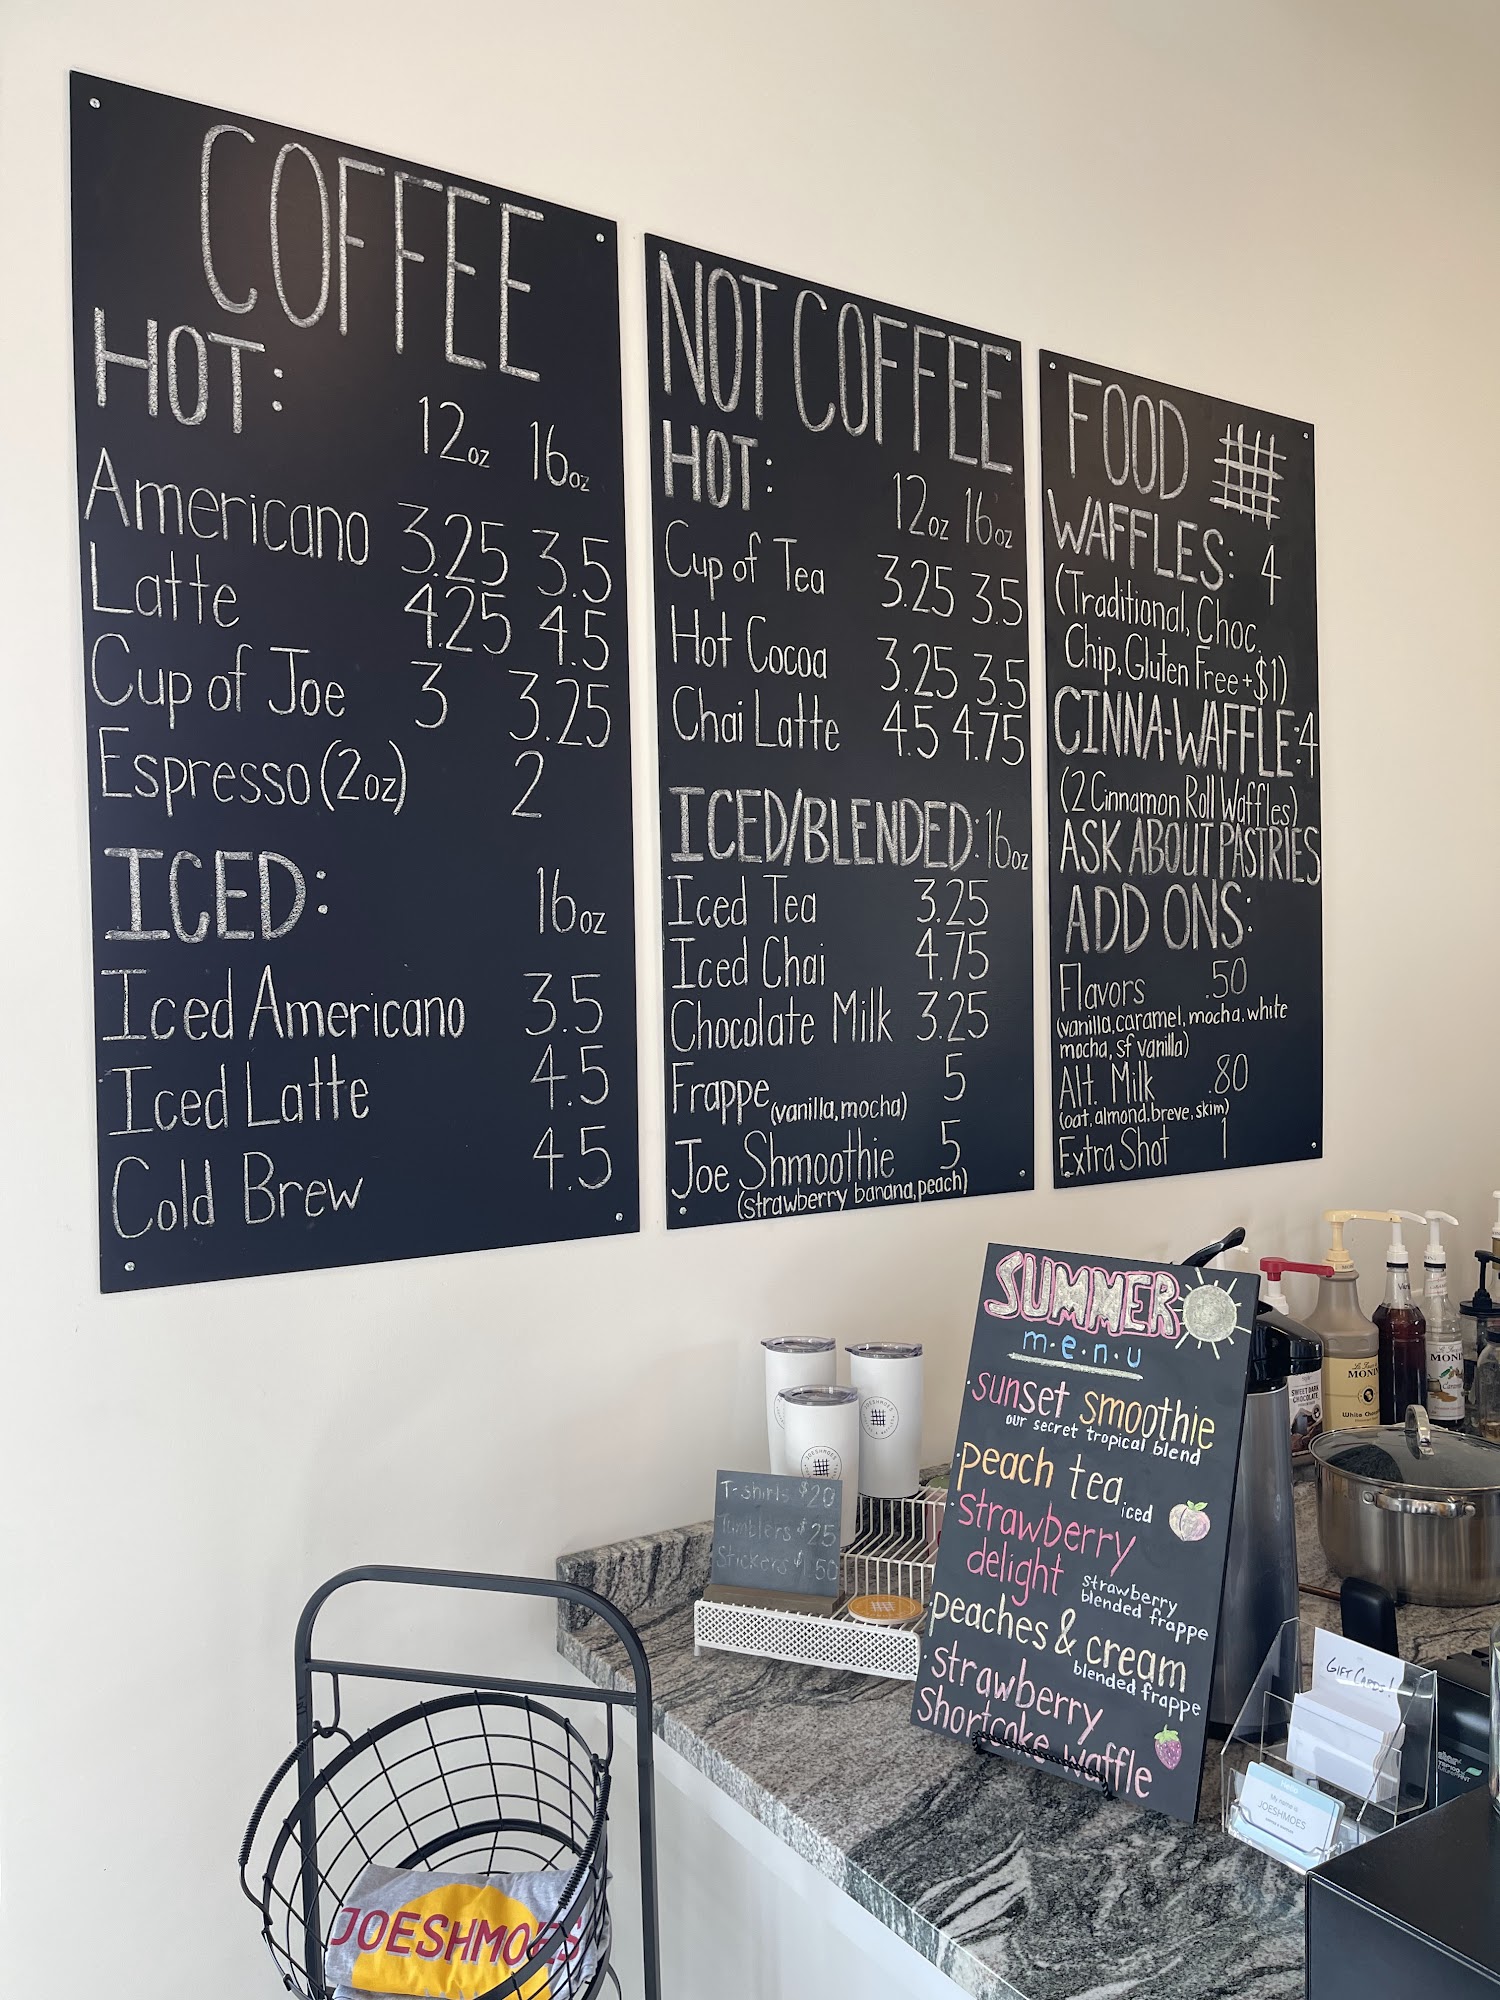 COFFEE
HOT:
12oz 16oz
Americano 3.25 3.5
Latte 4.25 4.5
Cup of Joe 3 3.25
Espresso (2oz) 2
ICED: 16oz
Iced Americano 3.5
Iced Latte 4.5
Cold Brew 4.5
NOT COFFEE
HOT:
12oz 16oz
Cup of Tea 3.25 3.5
Hot Cocoa 3.25 3.5
Chai Latte 4.5 4.75
ICED/BLENDED: 16oz
Iced Tea 3.25
Iced Chai 4.75
Chocolate Milk 3.25
Frappe (vanilla, mocha) 5
Joe Shmoothie 5
(strawberry banana, peach)
FOOD
WAFFLES: 4
(Traditional, Choc.
Chip, Gluten Free +$1)
CINNA-WAFFLE: 4
(2 Cinnamon Roll Waffles)
ASK ABOUT PASTRIES
ADD ONS:
Flavors .50
(vanilla, caramel, mocha, white
mocha, sf vanilla)
Alt. Milk .80
(oat, almond, breve, skim)
Extra Shot 1
SUMMER
m·e·n·u
·sunset smoothie
our secret tropical blend
·peach tea iced
·strawberry
delight strawberry
blended frappe
·peaches & cream
blended frappe
·strawberry
shortcake waffle
T-shirts $20
Tumblers $25
Stickers $1.50
JOESHMOES
JOESHMOES
GIFT CARDS!
Hello
My name is
JOESHMOES
SWEET DARK
CHOCOLATE
MONIN
White Chocolate
MONIN
Caramel
JOESHMOES